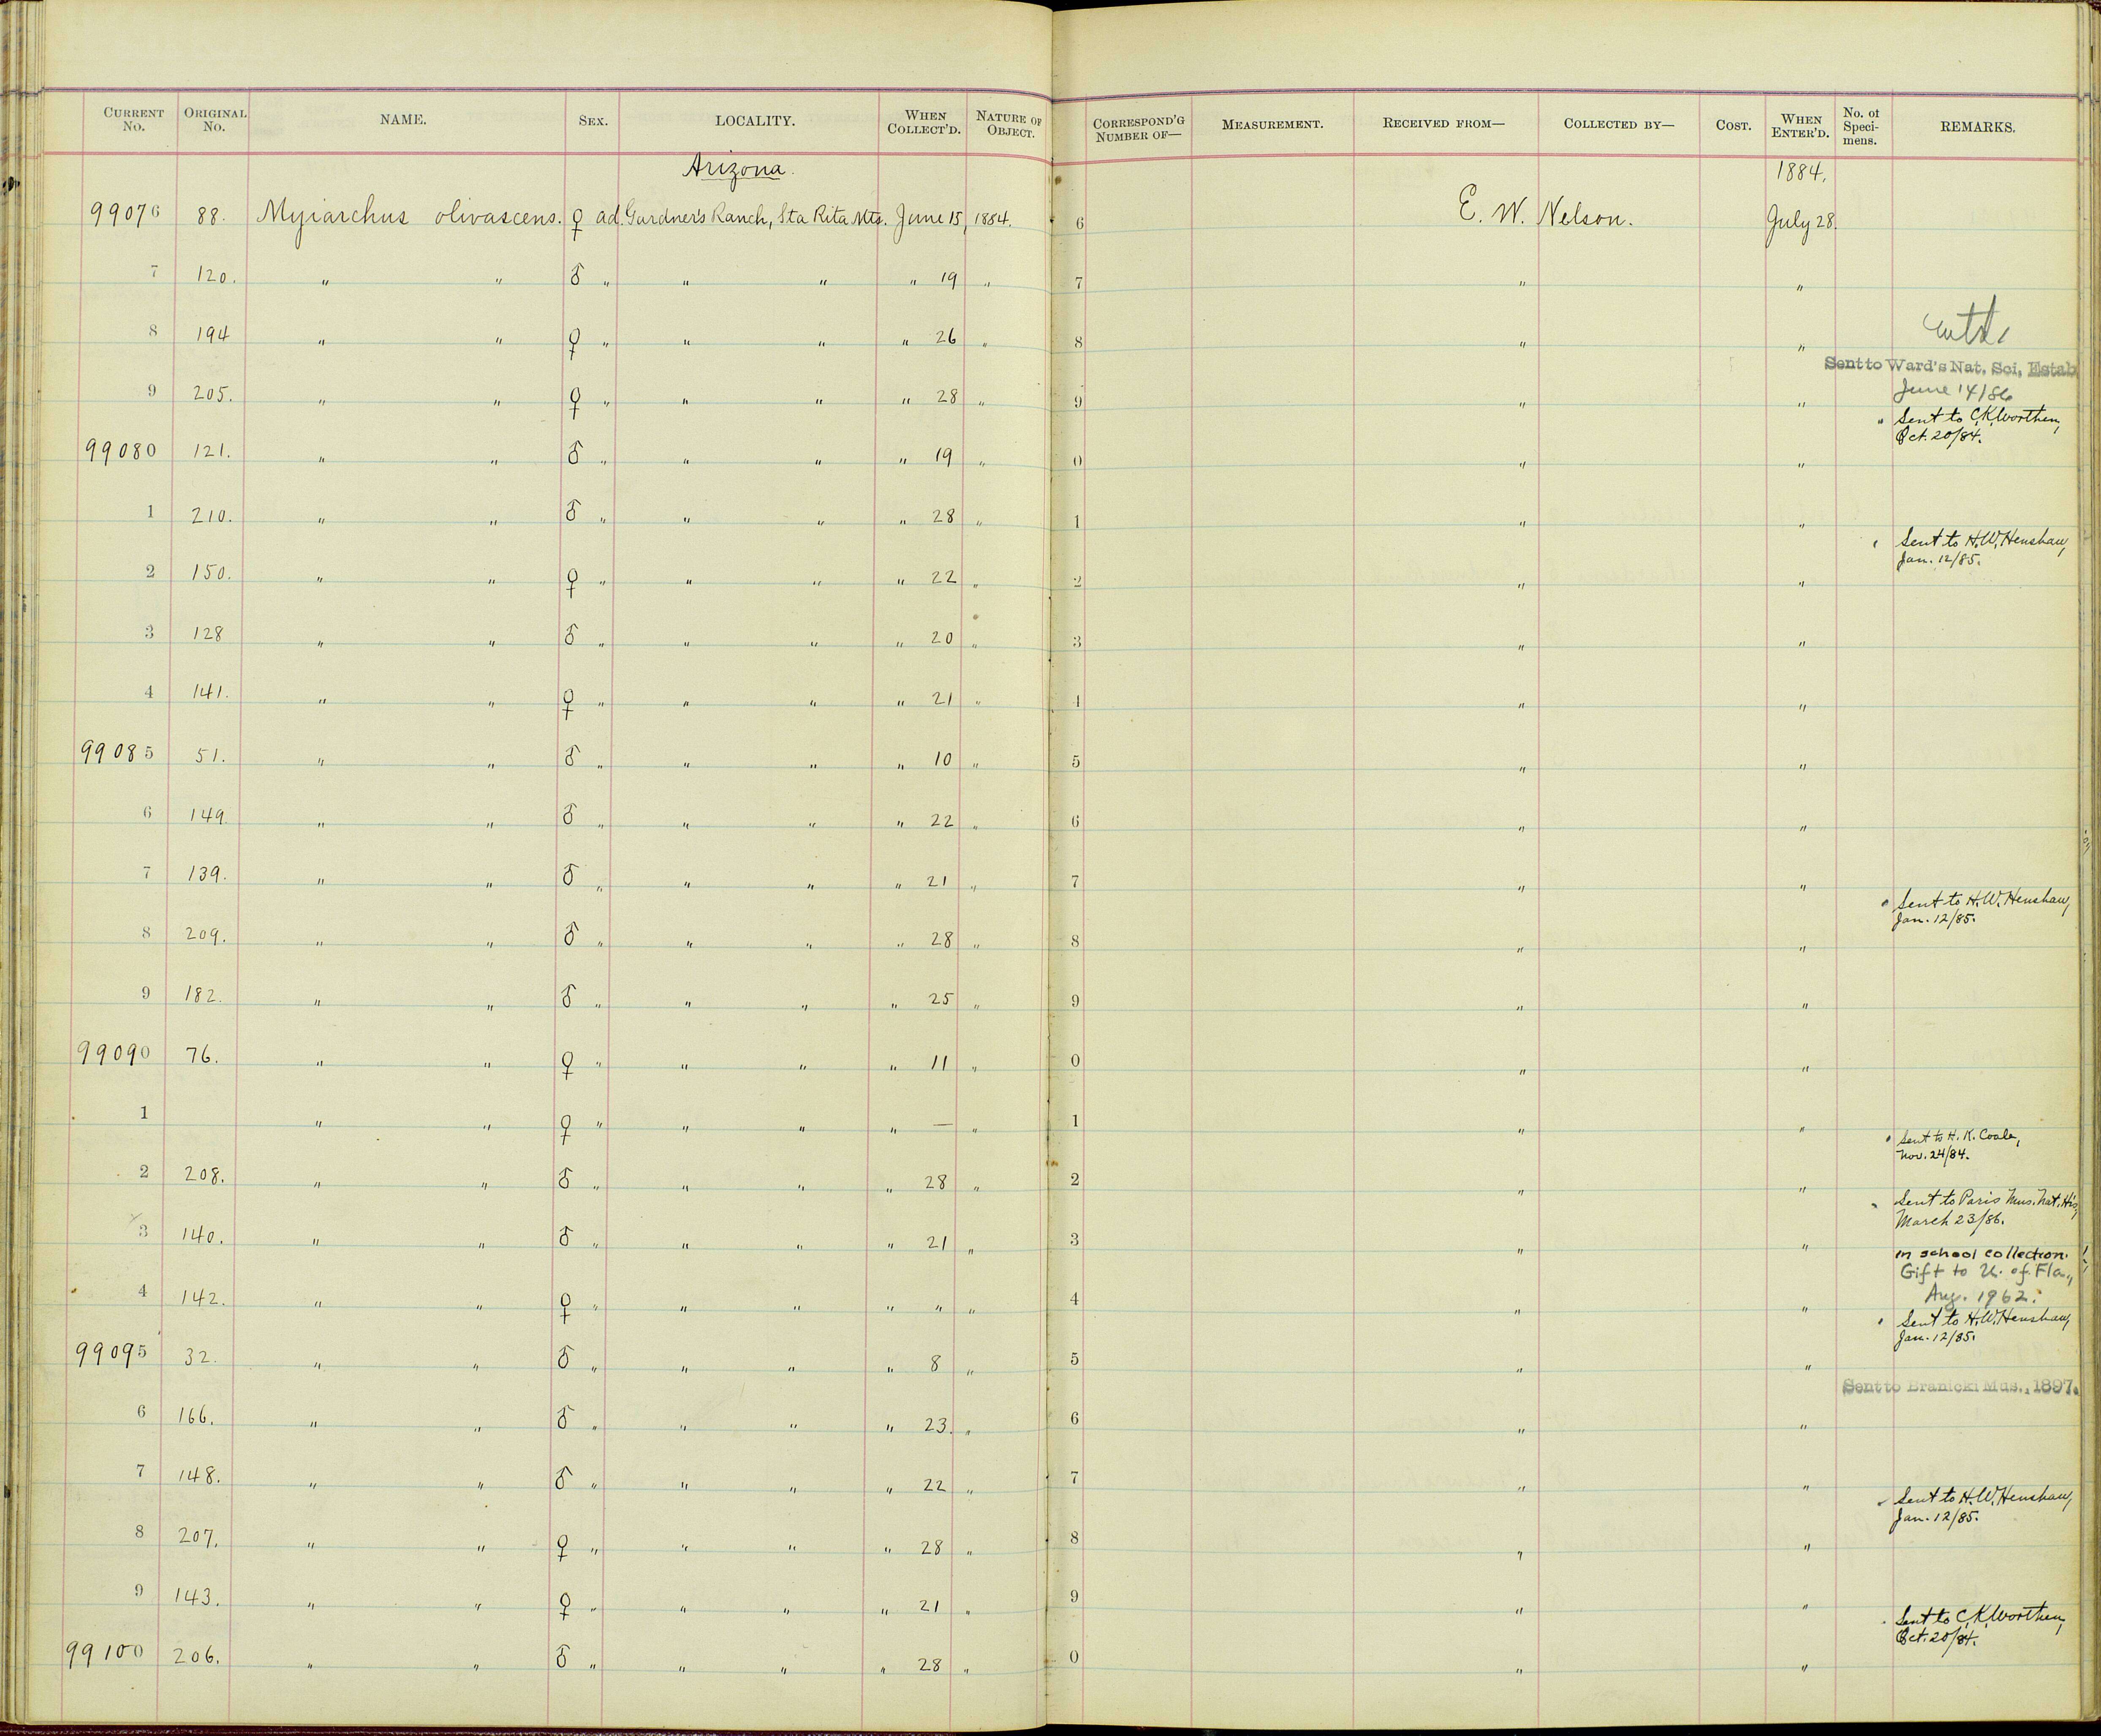 CURRENT No. ORIGINAL No. NAME. SEX. LOCALITY. WHEN COLLECT'D. NATURE OF OBJECT. CORRESPOND'G NUMBER OF— MEASUREMENT. RECEIVED FROM— COLLECTED BY— COST. WHEN ENTER'D. No. of Speci-mens. REMARKS.
Arizona. 1884.
99076 88. Myiarchus olivascens. ♀ ad. Gardner's Ranch, Sta Rita Mts. June 15, 1884. 6 E. W. Nelson. July 28.
7 120. " " ♂ " " " " 19 " 7 " "
8 194 " " ♀ " " " " 26 " 8 " "
Sent to Ward's Nat. Sci. Estab.
June 14/86
9 205. " " ♀ " " " " 28 " 9 " " " Sent to C.K. Worthen,
Oct. 20/84.
99080 121. " " ♂ " " " " 19 " 0 " "
1 210. " " ♂ " " " " 28 " 1 " "
Sent to H.W. Henshaw,
Jan. 12/85.
2 150. " " ♀ " " " " 22 " 2 " "
3 128 " " ♂ " " " " 20 " 3 " "
4 141. " " ♀ " " " " 21 " 4 " "
99085 51. " " ♂ " " " " 10 " 5 " "
6 149. " " ♂ " " " " 22 " 6 " "
7 139. " " ♂ " " " " 21 " 7 " "
Sent to H.W. Henshaw,
Jan. 12/85.
8 209. " " ♂ " " " " 28 " 8 " "
9 182. " " ♂ " " " " 25 " 9 " "
99090 76. " " ♀ " " " " 11 " 0 " "
1 " " ♀ " " " " — " 1 " "
Sent to H. K. Coale,
Nov. 24/84.
2 208. " " ♂ " " " " 28 " 2 " "
Sent to Paris Mus. Nat. His,
March 23/86.
3 140. " " ♂ " " " " 21 " 3 " "
in school collection.
Gift to U. of Fla.,
Aug. 1962.
4 142. " " ♀ " " " " " " 4 " "
Sent to H.W. Henshaw,
Jan. 12/85.
99095 32. " " ♂ " " " " 8 " 5 " "
Sent to Branicki Mus., 1897.
6 166. " " ♂ " " " " 23. " 6 " "
7 148. " " ♂ " " " " 22 " 7 " "
Sent to H.W. Henshaw,
Jan. 12/85.
8 207. " " ♀ " " " " 28 " 8 " "
9 143. " " ♀ " " " " 21 " 9 " "
Sent to C.K. Worthen,
Oct. 20/84.
99100 206. " " ♂ " " " " 28 " 0 " "